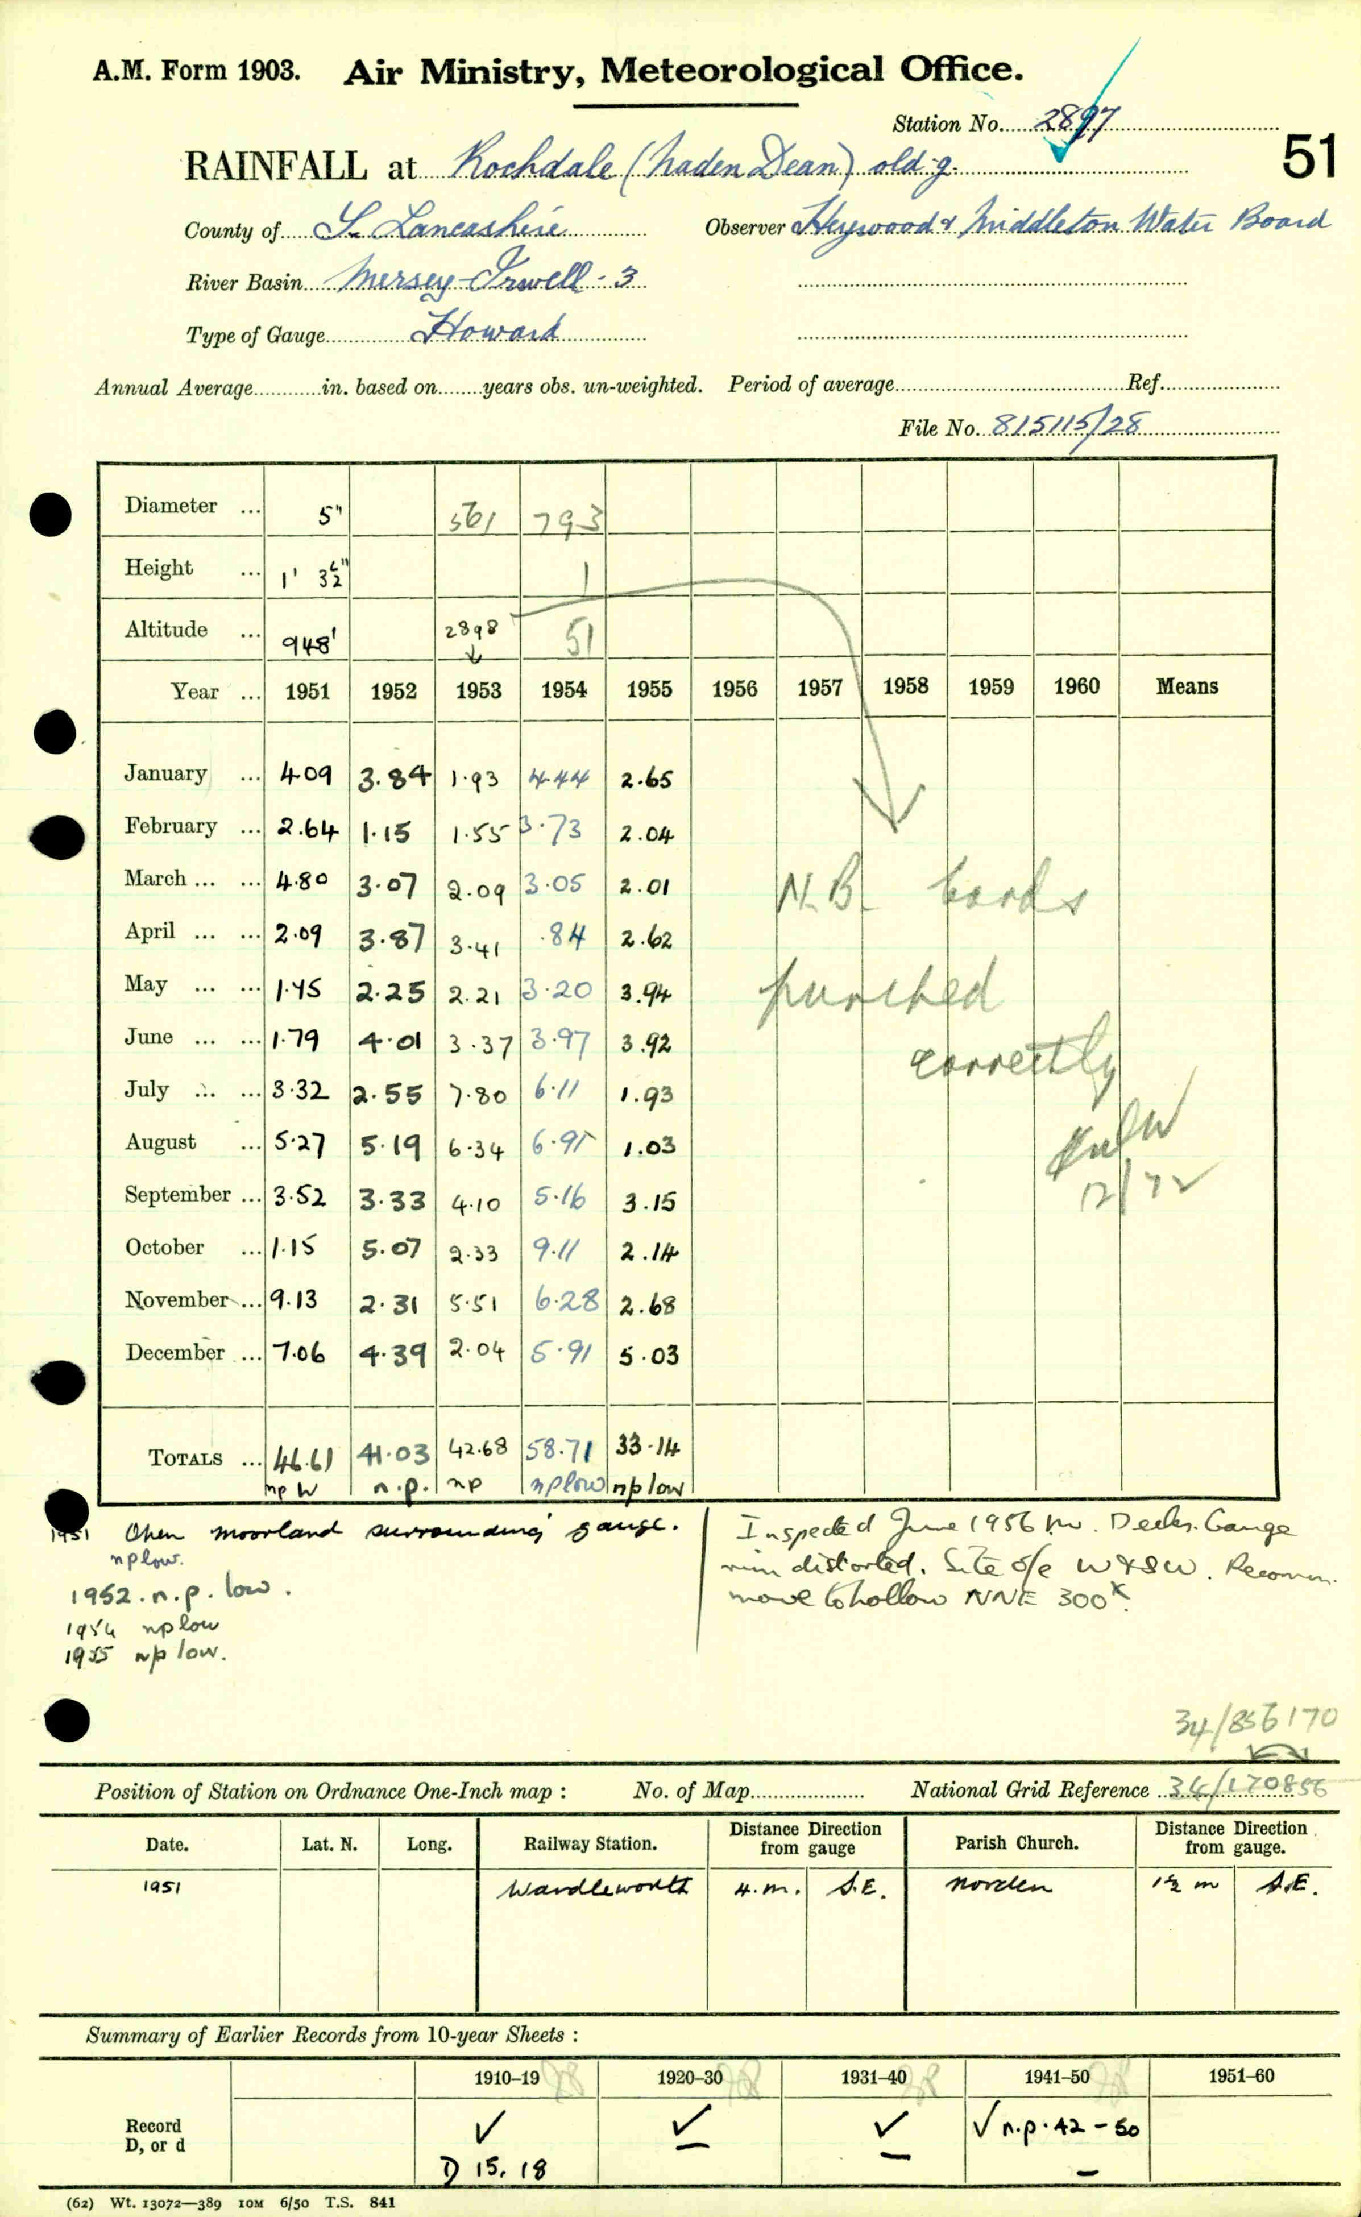 A.M. Form 1903. Air Ministry, Meteorological Office.
Station No. 2897
RAINFALL at Rochdale (Naden Dean) old g. 51
County of S. Lancashire Observer Heywood & Middleton Water Board
River Basin Mersey-Irwell - 3
Type of Gauge Howard
Annual Average in. based on years obs. un-weighted. Period of average Ref.
File No. 815115/28
Diameter ... 5" 561 793
Height ... 1' 3½" 1
Altitude ... 948' 2898 ↓ 51
Year ... 1951 1952 1953 1954 1955 1956 1957 1958 1959 1960 Means
January ... 4.09 3.84 1.93 4.44 2.65
February ... 2.64 1.15 1.55 3.73 2.04
March ... ... 4.80 3.07 2.09 3.05 2.01
April ... ... 2.09 3.87 3.41 .84 2.62
May ... ... 1.45 2.25 2.21 3.20 3.94
June ... ... 1.79 4.01 3.37 3.97 3.92
July ... ... 3.32 2.55 7.80 6.11 1.93
August ... 5.27 5.19 6.34 6.91 1.03
September ... 3.52 3.33 4.10 5.16 3.15
October ... 1.15 5.07 2.33 9.11 2.14
November ... 9.13 2.31 5.51 6.28 2.68
December ... 7.06 4.39 2.04 5.91 5.03
N.B. Cards
punched
correctly
12/72
TOTALS ... 46.61 41.03 42.68 58.71 33.14
np W n.p. np np low np low
1951 Open moorland surrounding gauge.
np low.
1952. n.p. low.
1954 np low
1955 np low.
Inspected June 1956 Gauge
rim distorted. Site o/e W & SW. Recomm.
move to hollow NNE 300ˣ.
34/856170
Position of Station on Ordnance One-Inch map : No. of Map National Grid Reference 34/170856
Date. Lat. N. Long. Railway Station. Distance from gauge Direction Parish Church. Distance from gauge. Direction
1951 Wardleworth 4. m. S.E. Norden 1½ m S.E.
Summary of Earlier Records from 10-year Sheets :
1910–19 1920–30 1931–40 1941–50 1951–60
Record D, or d ✓ ✓ ✓ ✓ n.p. 42 – 50
D 15, 18 – – –
(62) Wt. 13072—389 10M 6/50 T.S. 841